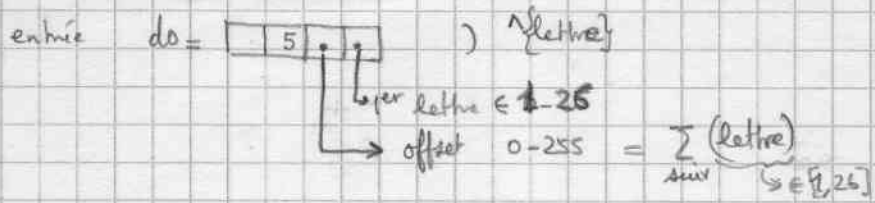 entrée d0 = 5 ) ^{lettre}
1er lettre ∈ 1-26
offset 0-255 = Σ (lettre)
suiv ↳ ∈ [1,26]